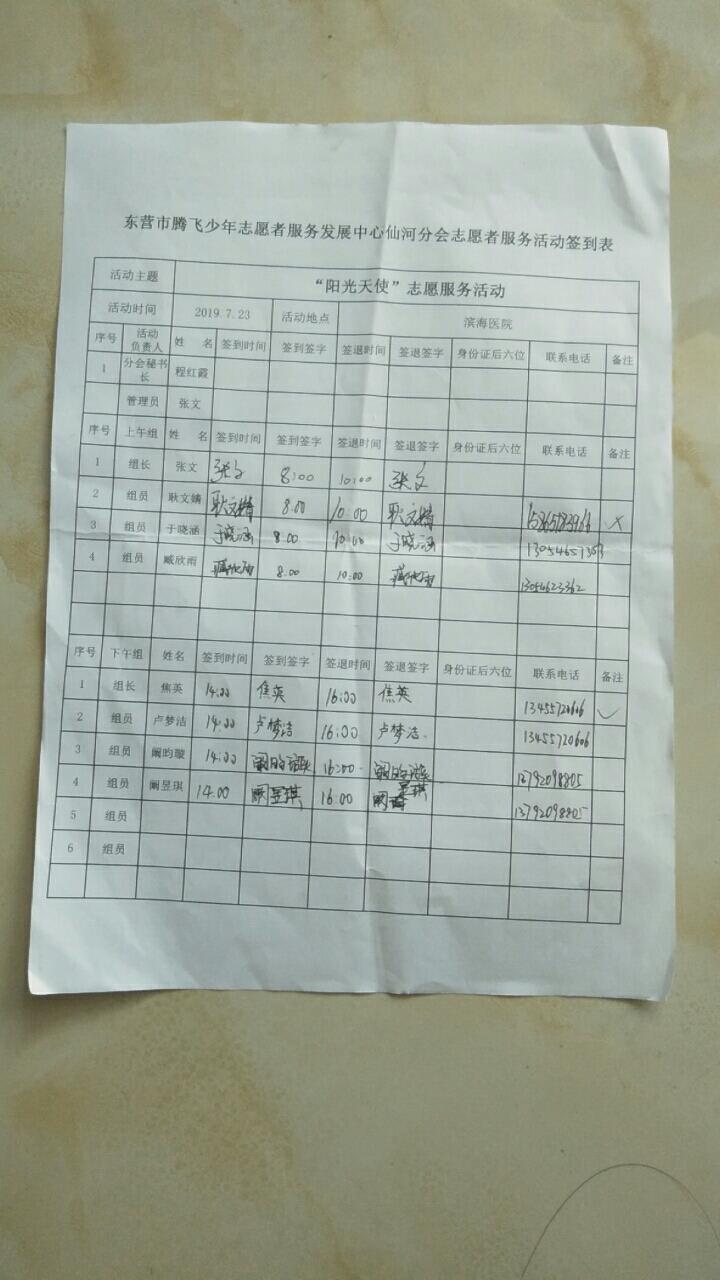 东营市腾飞少年志愿者服务发展中心仙河分会志愿者服务活动签到表
活动主题 “阳光天使”志愿服务活动
活动时间 2019.7.23 活动地点 滨海医院
序号 活动负责人 姓 名 签到时间 签到签字 签退时间 签退签字 身份证后六位 联系电话 备注
1 分会秘书长 程红霞
管理员 张文
序号 上午组 姓 名 签到时间 签到签字 签退时间 签退签字 身份证后六位 联系电话 备注
1 组长 张文 张文 8:00 10:00 张文
2 组员 耿文婧 耿文婧 8.00 10.00 耿文婧
3 组员 于晓涵 于晓涵 8.00 10.00 于晓涵
4 组员 臧欣雨 8.00 10:00 13054623362
序号 下午组 姓名 签到时间 签到签字 签退时间 签退签字 身份证后六位 联系电话 备注
1 组长 焦英 14:00 焦英 16:00 焦英 13455720606 ✓
2 组员 卢梦洁 14:00 卢梦洁 16:00 卢梦洁. 13455720606
3 组员 阚昀璇 14:00 16:00 13792098805
4 组员 阚昱琪 14.00 阚昱琪 16:00 13792098805
5 组员
6 组员